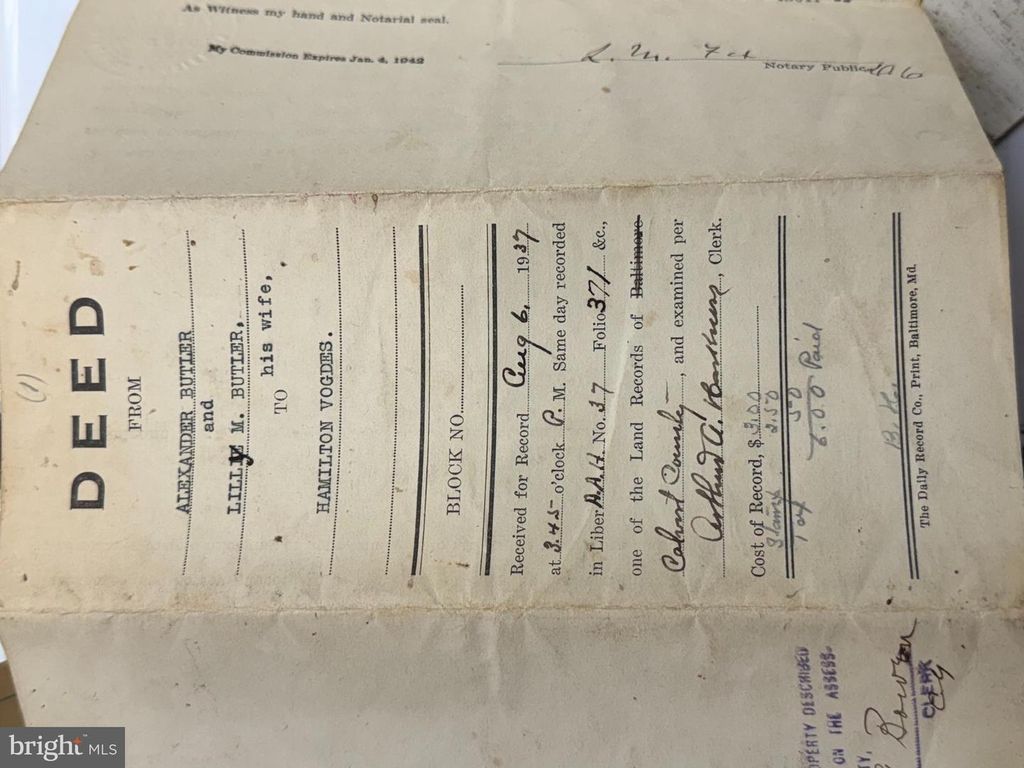 As Witness my hand and Notarial seal.
My Commission Expires Jan. 4, 1942
Notary Public
(1)
DEED
FROM
ALEXANDER BUTLER
and
LILLY M. BUTLER,
his wife,
TO
HAMILTON VOGDES.
BLOCK NO.
Received for Record Aug 6, 1937
at 3.45 o'clock P. M. Same day recorded
in Liber A.A.H. No. 37 Folio 371 &c.,
one of the Land Records of Baltimore
Calvert County, and examined per
Arthur A. , Clerk.
Cost of Record, $ 2.00
Stamps 2.50
Tax .50
Paid
The Daily Record Co., Print, Baltimore, Md.
OPERTY DESCRIBED
ON THE ASSESS-
TY,
Bowen
CLERK
bright MLS